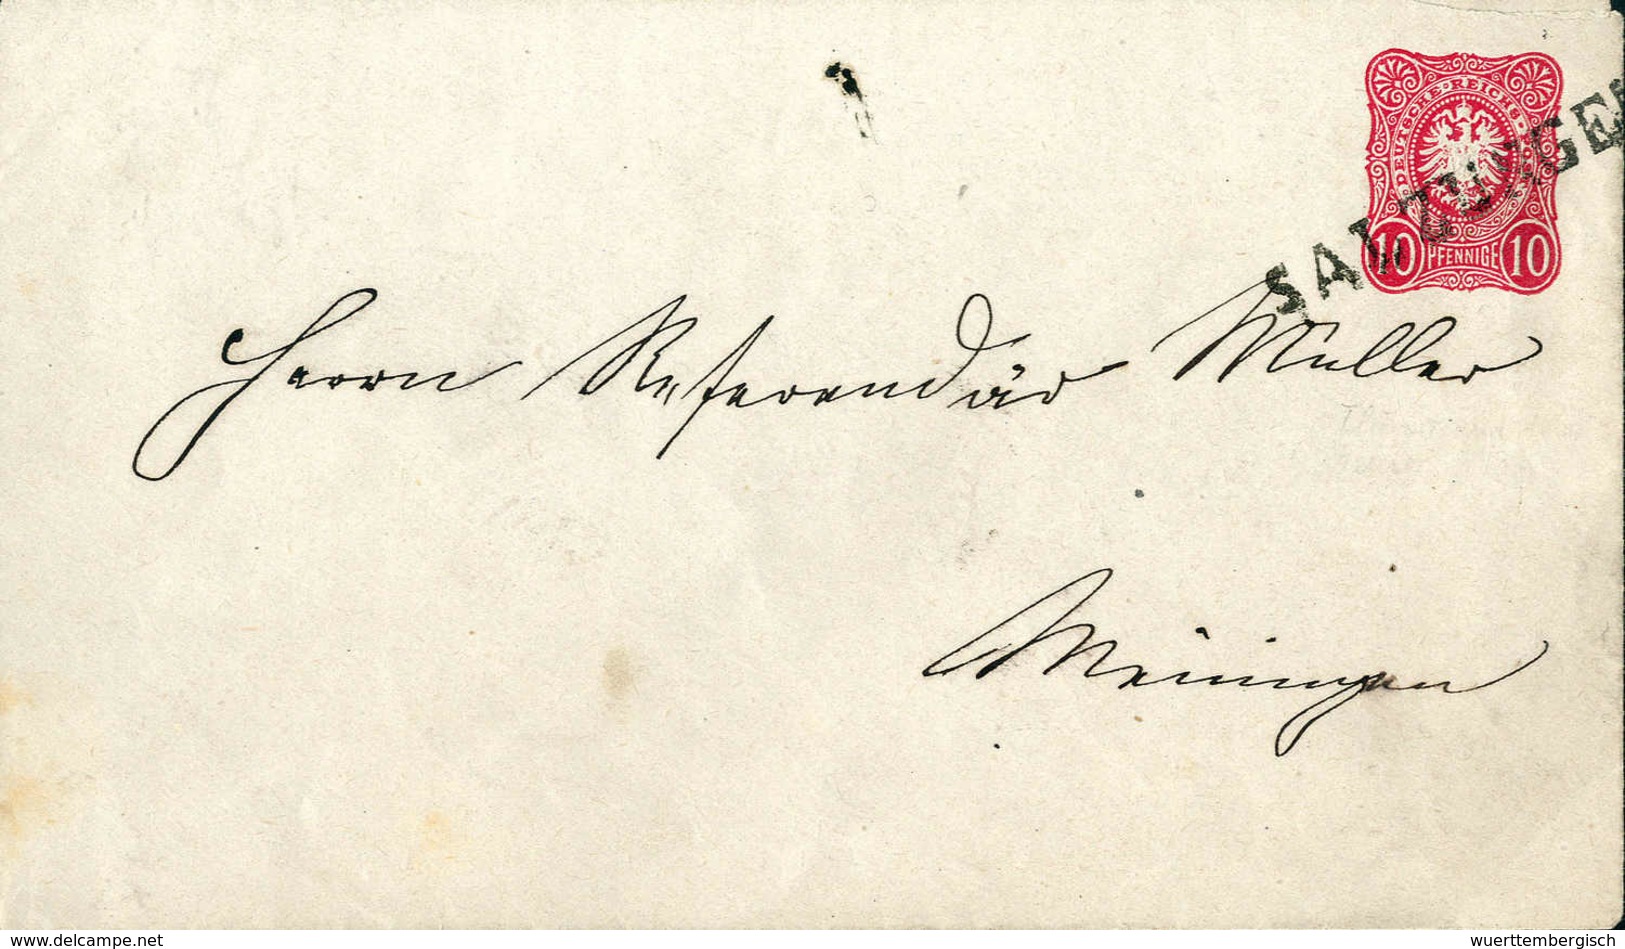 DEUTSCHE·REICHS·POST
10 PFENNIGE 10
SALZUNGEN
Herrn Referendär Müller
Meiningen
www.delcampe.net
wuerttembergisch